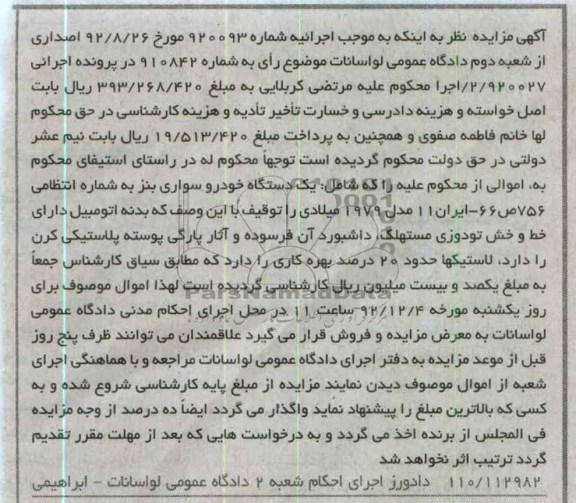 آگهی مزایده نظر به اینکه به موجب اجرائیه شماره ۹۲۰۰۹۳ مورخ ۹۲/۸/۲۶ اصداری
از شعبه دوم دادگاه عمومی لواسانات موضوع رأی به شماره ۹۱۰۸۴۲ در پرونده اجرائی
۲/۹۲۰۰۲۷/اجرا محکوم علیه مرتضی کربلایی به مبلغ ۳۹۳/۲۶۸/۴۲۰ ریال بابت
اصل خواسته و هزینه دادرسی و خسارت تأخیر تأدیه و هزینه کارشناسی در حق محکوم
لها خانم فاطمه صفوی و همچنین به پرداخت مبلغ ۱۹/۵۱۳/۴۲۰ ریال بابت نیم عشر
دولتی در حق دولت محکوم گردیده است توجهاً محکوم له در راستای استیفای محکوم
به، اموالی از محکوم علیه را که شامل: یک دستگاه خودرو سواری بنز به شماره انتظامی
۷۵۶ص۶۶-ایران۱۱ مدل ۱۹۷۹ میلادی را توقیف با این وصف که بدنه اتومبیل دارای
خط و خش تودوزی مستهلک، داشبورد آن فرسوده و آثار پارگی پوسته پلاستیکی کرن
را دارد، لاستیکها حدود ۲۰ درصد بهره کاری را دارد که مطابق سیاق کارشناس جمعاً
به مبلغ یکصد و بیست میلیون ریال کارشناسی گردیده است لهذا اموال موصوف برای
روز یکشنبه مورخه ۹۲/۱۲/۴ ساعت ۱۱ در محل اجرای احکام مدنی دادگاه عمومی
لواسانات به معرض مزایده و فروش قرار می گیرد علاقمندان می توانند ظرف پنج روز
قبل از موعد مزایده به دفتر اجرای دادگاه عمومی لواسانات مراجعه و با هماهنگی اجرای
شعبه از اموال موصوف دیدن نمایند مزایده از مبلغ پایه کارشناسی شروع شده و به
کسی که بالاترین مبلغ را پیشنهاد نماید واگذار می گردد ایضاً ده درصد از وجه مزایده
فی المجلس از برنده اخذ می گردد و به درخواست هایی که بعد از مهلت مقرر تقدیم
گردد ترتیب اثر نخواهد شد
۱۱۰/۱۱۲۹۸۲ دادورز اجرای احکام شعبه ۲ دادگاه عمومی لواسانات - ابراهیمی
ParsNamadData